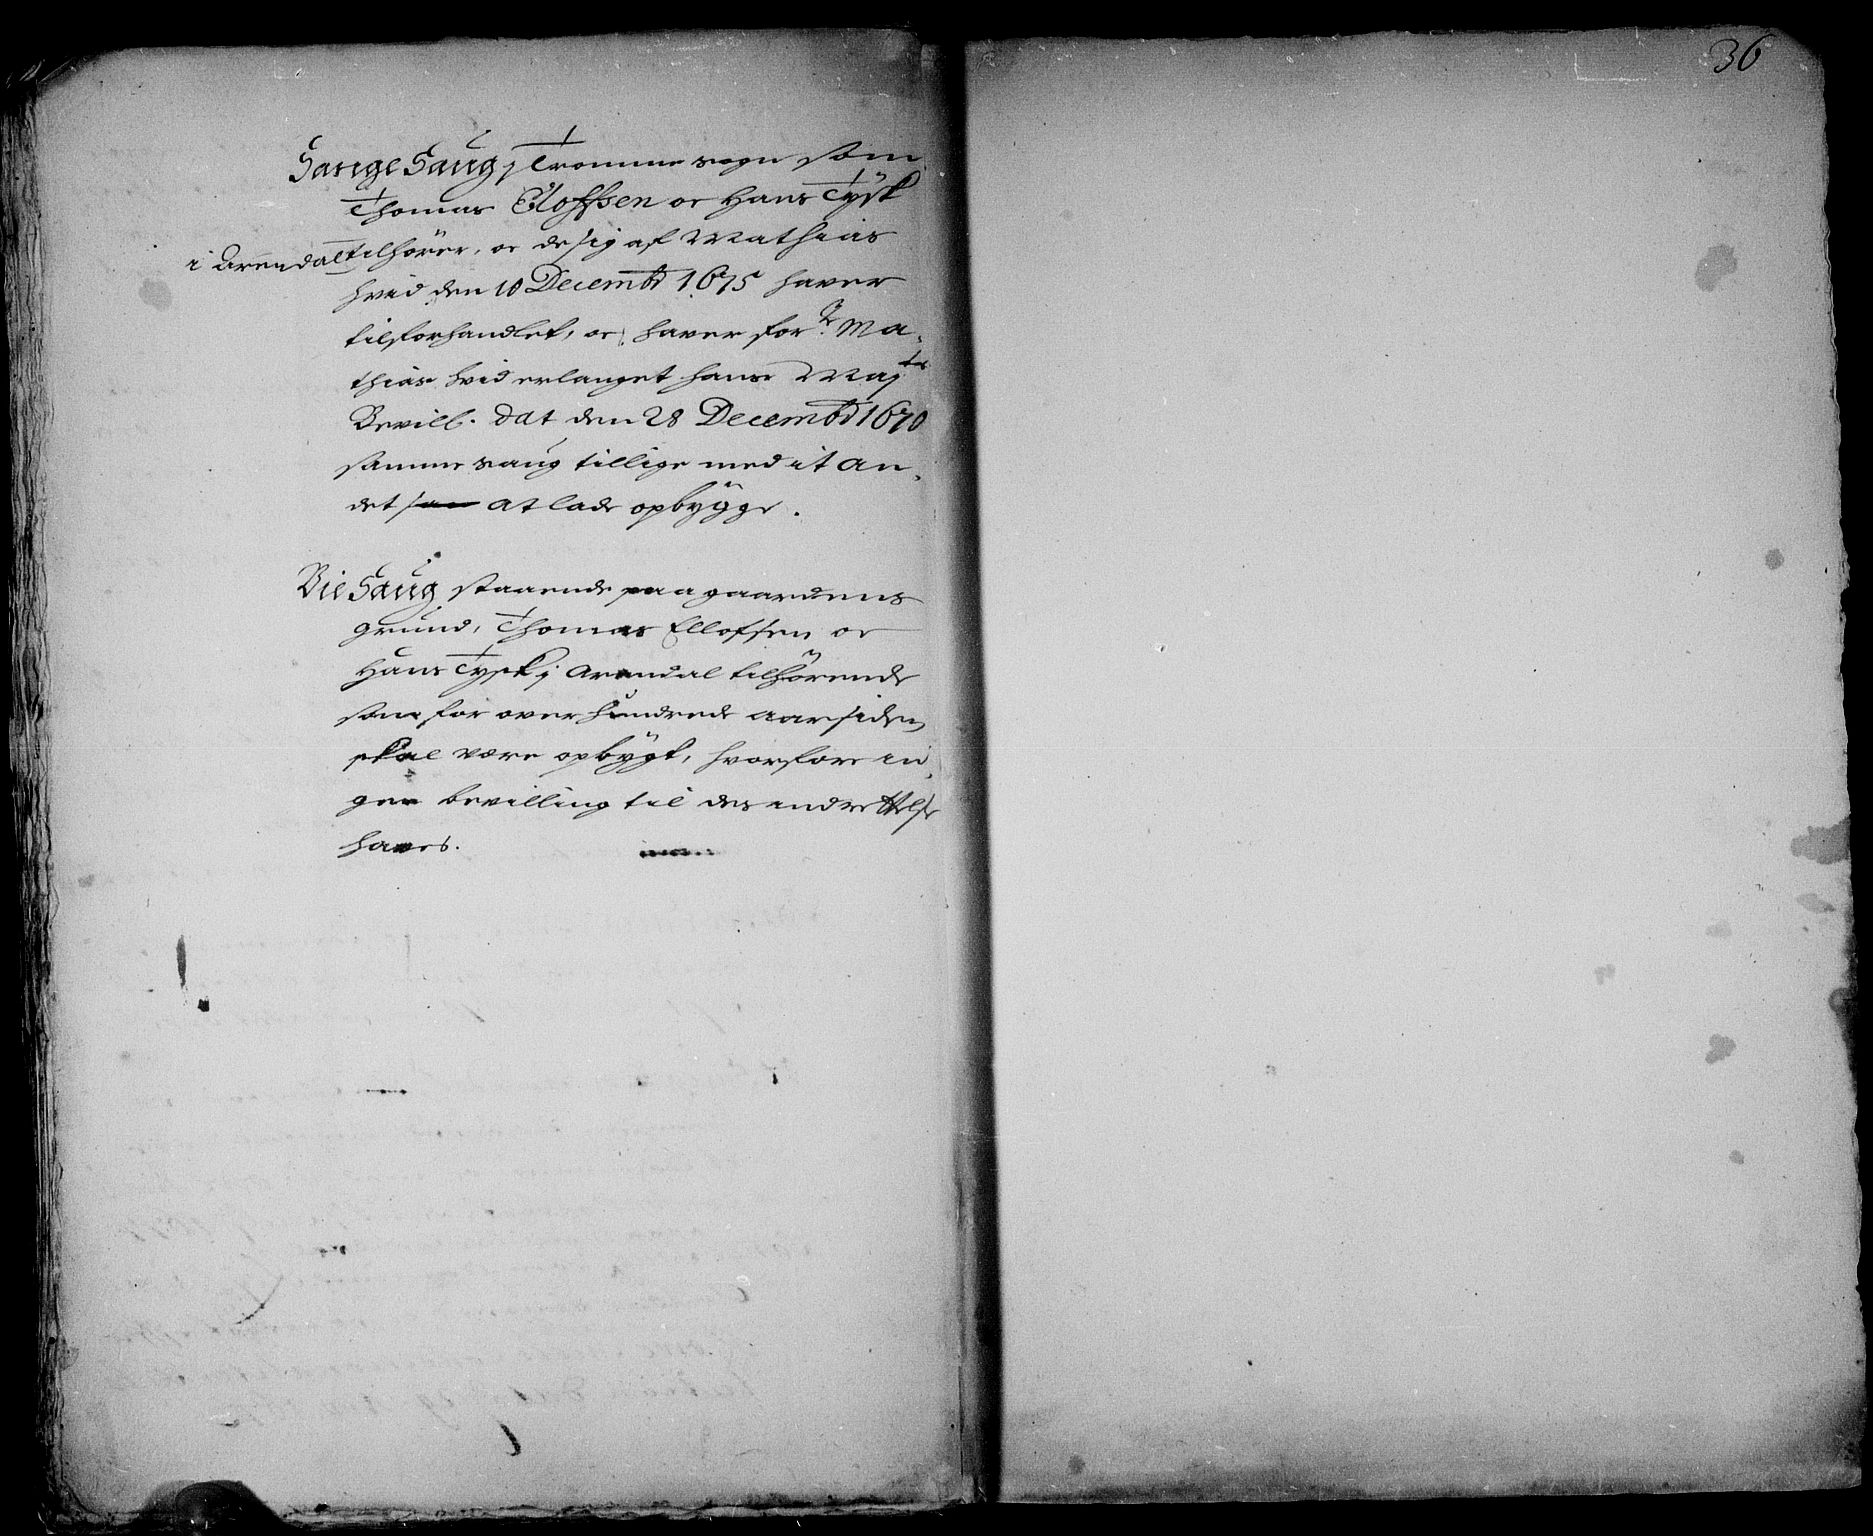 36
Sauge Saug j Tromme sogn som
Thomas Elofssen oc Hans Tÿsk
i Arendal tilhører, oc de sig af Mathias
hvid den 10 Decembr 1675 haver
tilforhandlet, oc haver forne Ma-
thias hvid erlanget hans Majts
Bevill. Dat den 28 Decembr 1670
samme saug tillige med it an-
det at lade opbÿgge.
Vie Saug staaende paa gaardens
grund, Thomas Ellofsen oc
Hans Tysk j Arendal tilhørende
som for over hundrede aar siden
skal være opbÿgt, hvorfore in-
gen bevilling til des indrettelse
haves.